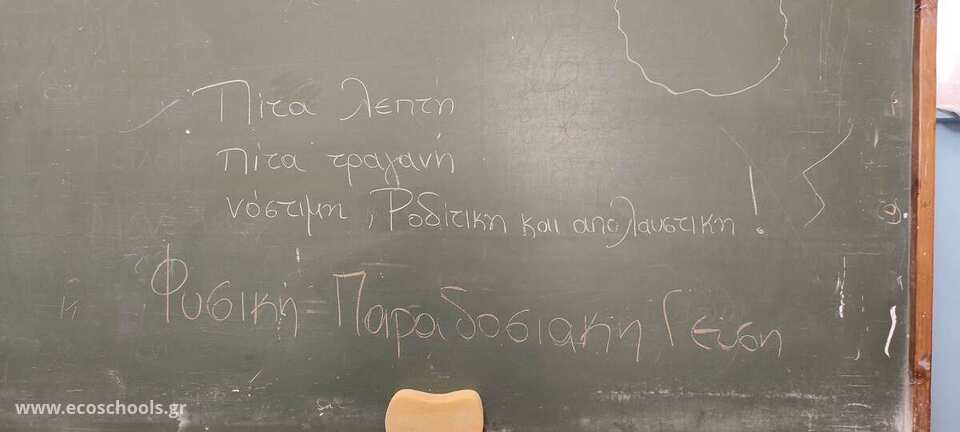 Πίτα λεπτή
πίτα τραγανή
νόστιμη, Ροδίτικη και απολαυστική!
Φυσική - Παραδοσιακή Γεύση
www.ecoschools.gr